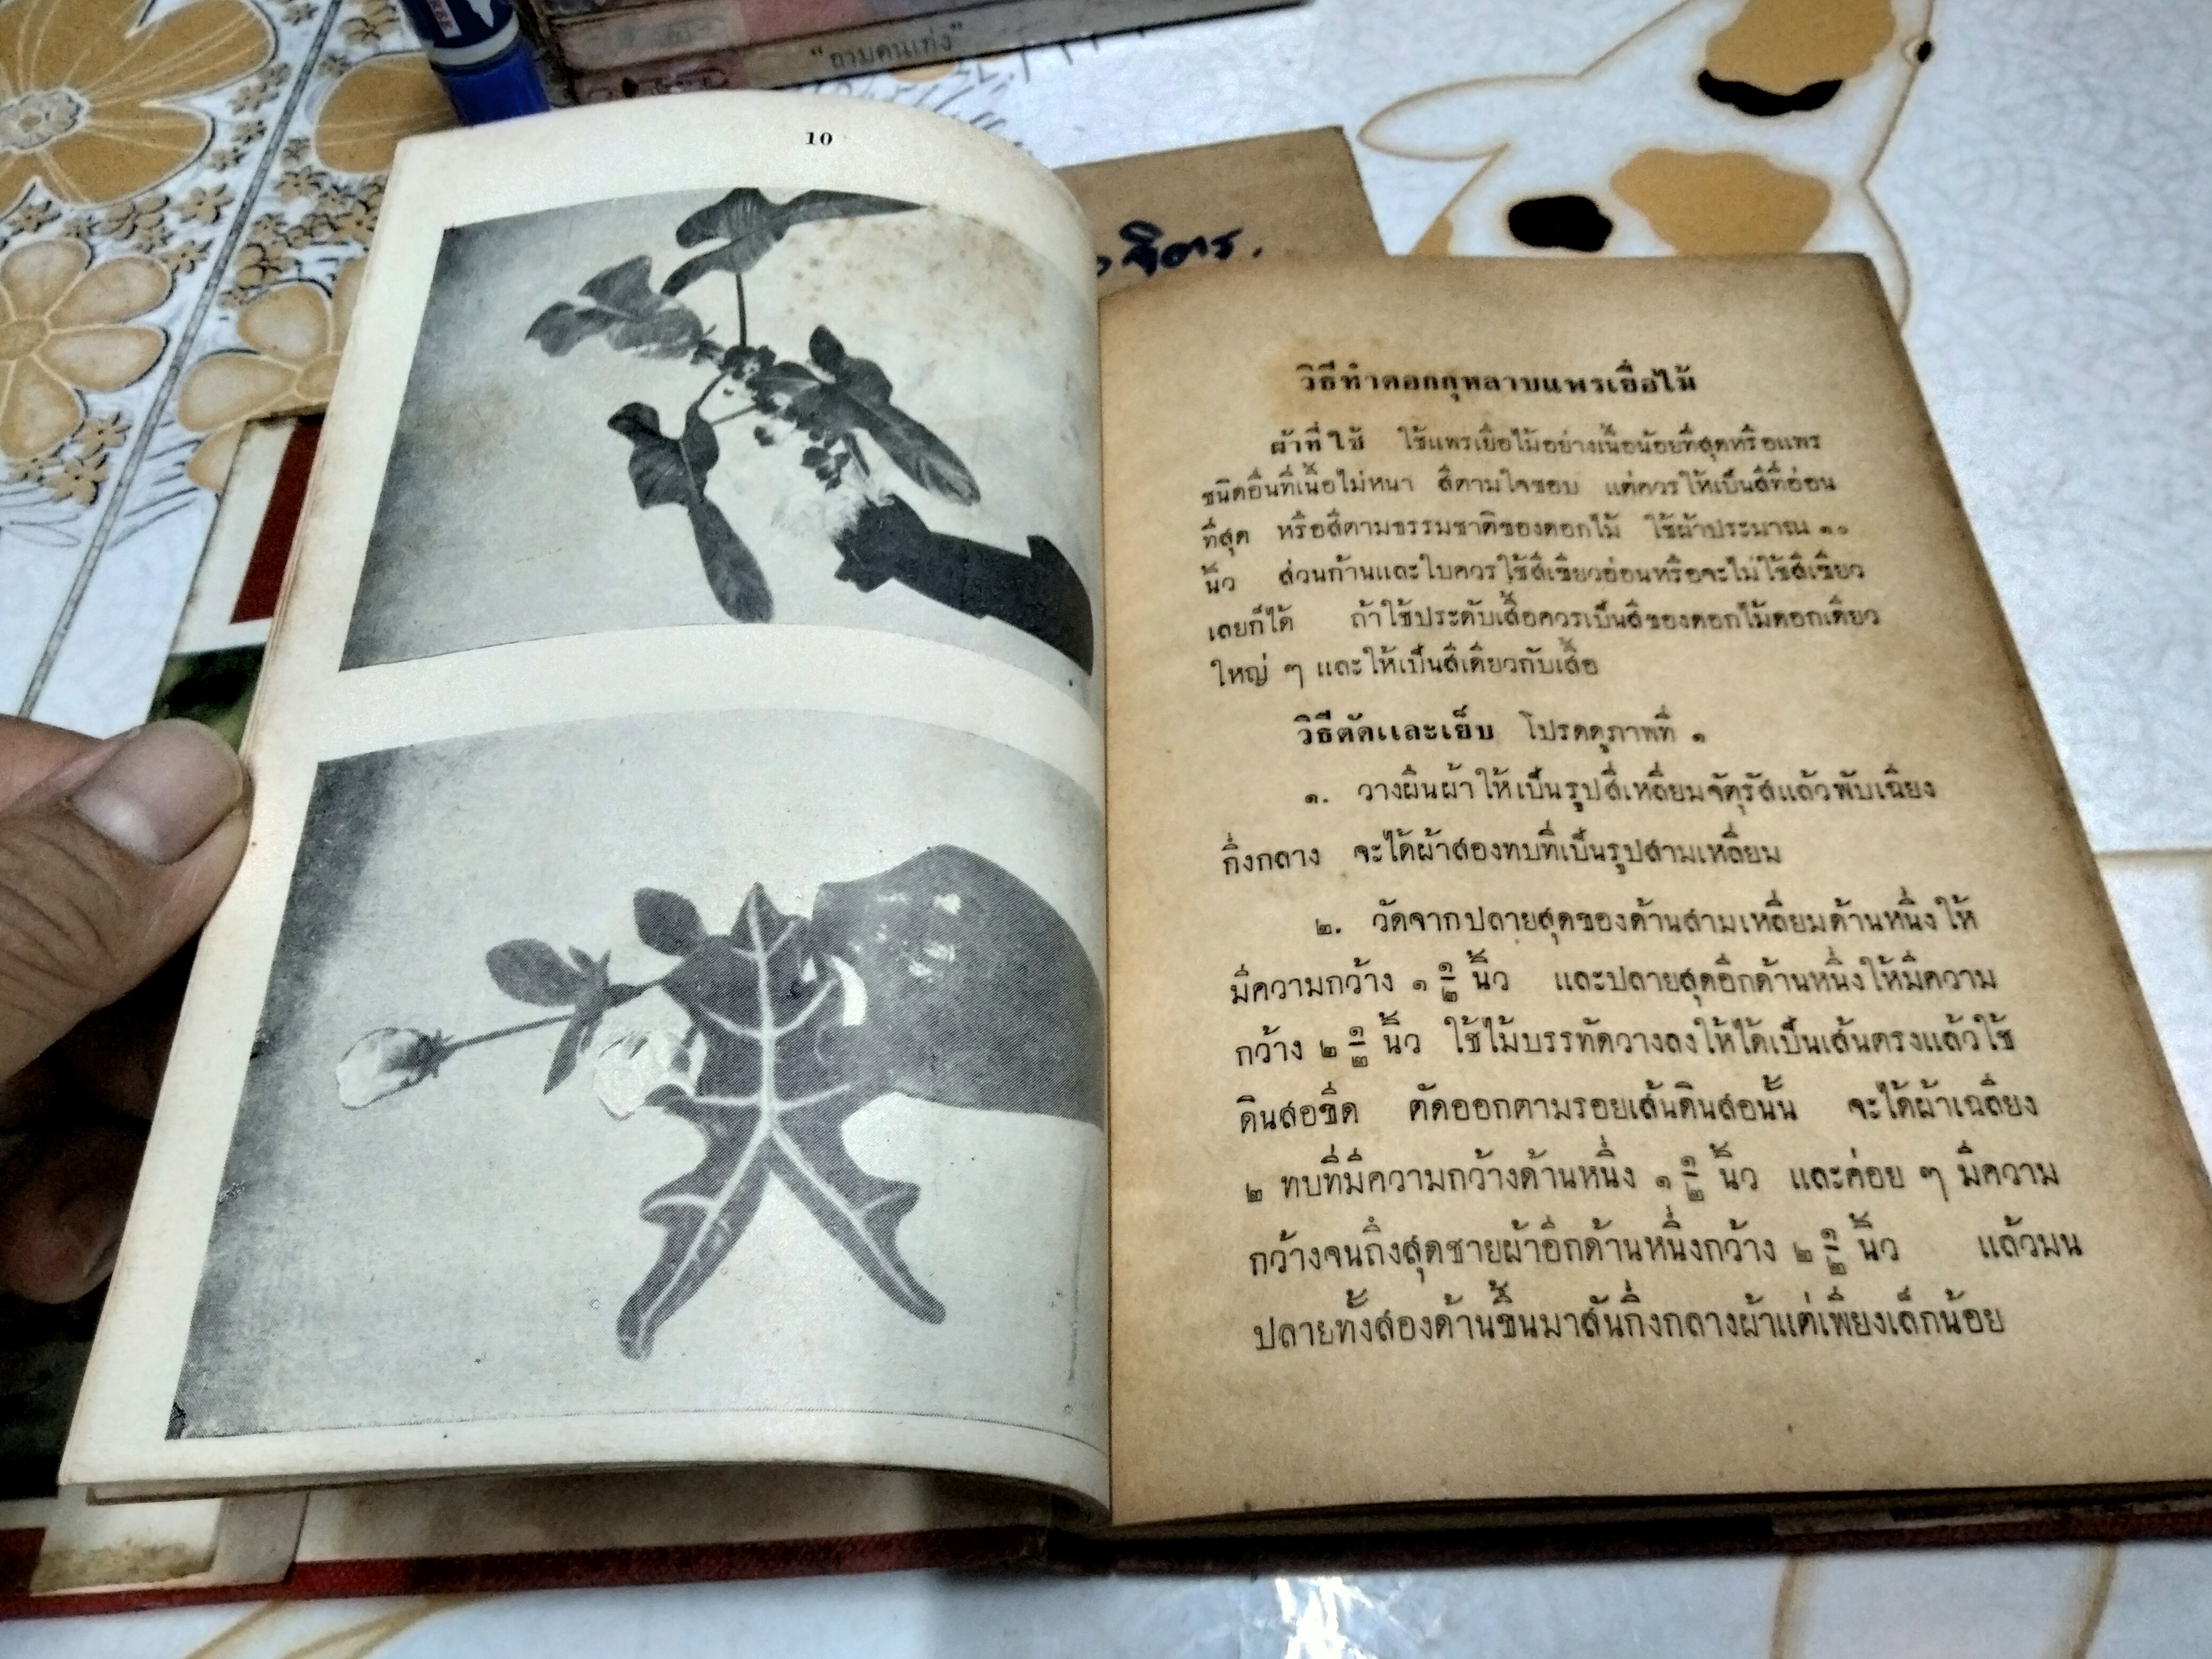 "ถามคนเก่ง"
10
จิตร.
วิธีทำดอกกุหลาบแพรเยื่อไม้
ผ้าที่ใช้ ใช้แพรเยื่อไม้อย่างเนื้อน้อยที่สุดหรือแพร
ชนิดอื่นที่เนื้อไม่หนา สีตามใจชอบ แต่ควรให้เป็นสีที่อ่อน
ที่สุด หรือสีตามธรรมชาติของดอกไม้ ใช้ผ้าประมาณ ๑๐
นิ้ว ส่วนก้านและใบควรใช้สีเขียวอ่อนหรือจะไม่ใช้สีเขียว
เลยก็ได้ ถ้าใช้ประดับเสื้อควรเป็นสีของดอกไม้ดอกเดียว
ใหญ่ ๆ และให้เป็นสีเดียวกับเสื้อ
วิธีตัดและเย็บ โปรดดูภาพที่ ๑
๑. วางผืนผ้าให้เป็นรูปสี่เหลี่ยมจัตุรัสแล้วพับเฉียง
กึ่งกลาง จะได้ผ้าสองทบที่เป็นรูปสามเหลี่ยม
๒. วัดจากปลายสุดของด้านสามเหลี่ยมด้านหนึ่งให้
มีความกว้าง ๑ ๑/๒ นิ้ว และปลายสุดอีกด้านหนึ่งให้มีความ
กว้าง ๒ ๑/๒ นิ้ว ใช้ไม้บรรทัดวางลงให้ได้เป็นเส้นตรงแล้วใช้
ดินสอขีด ตัดออกตามรอยเส้นดินสอนั้น จะได้ผ้าเฉลียง
๒ ทบที่มีความกว้างด้านหนึ่ง ๑ ๑/๒ นิ้ว และค่อย ๆ มีความ
กว้างจนถึงสุดชายผ้าอีกด้านหนึ่งกว้าง ๒ ๑/๒ นิ้ว แล้วมน
ปลายทั้งสองด้านขึ้นมาสันกึ่งกลางผ้าแต่เพียงเล็กน้อย